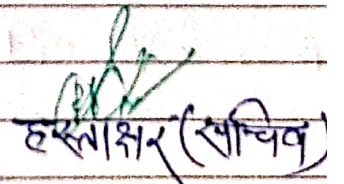 हस्ताक्षर (सचिव)